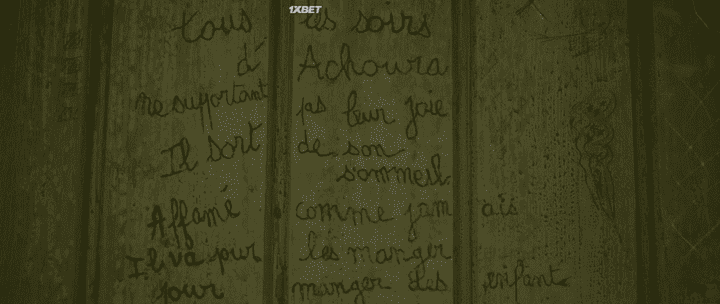 1XBET
tous les soirs
d' Achoura
ne supportant pas leur joie
Il sort de son
sommeil
Affamé comme jamais
Il va pour les manger
pour manger des enfant